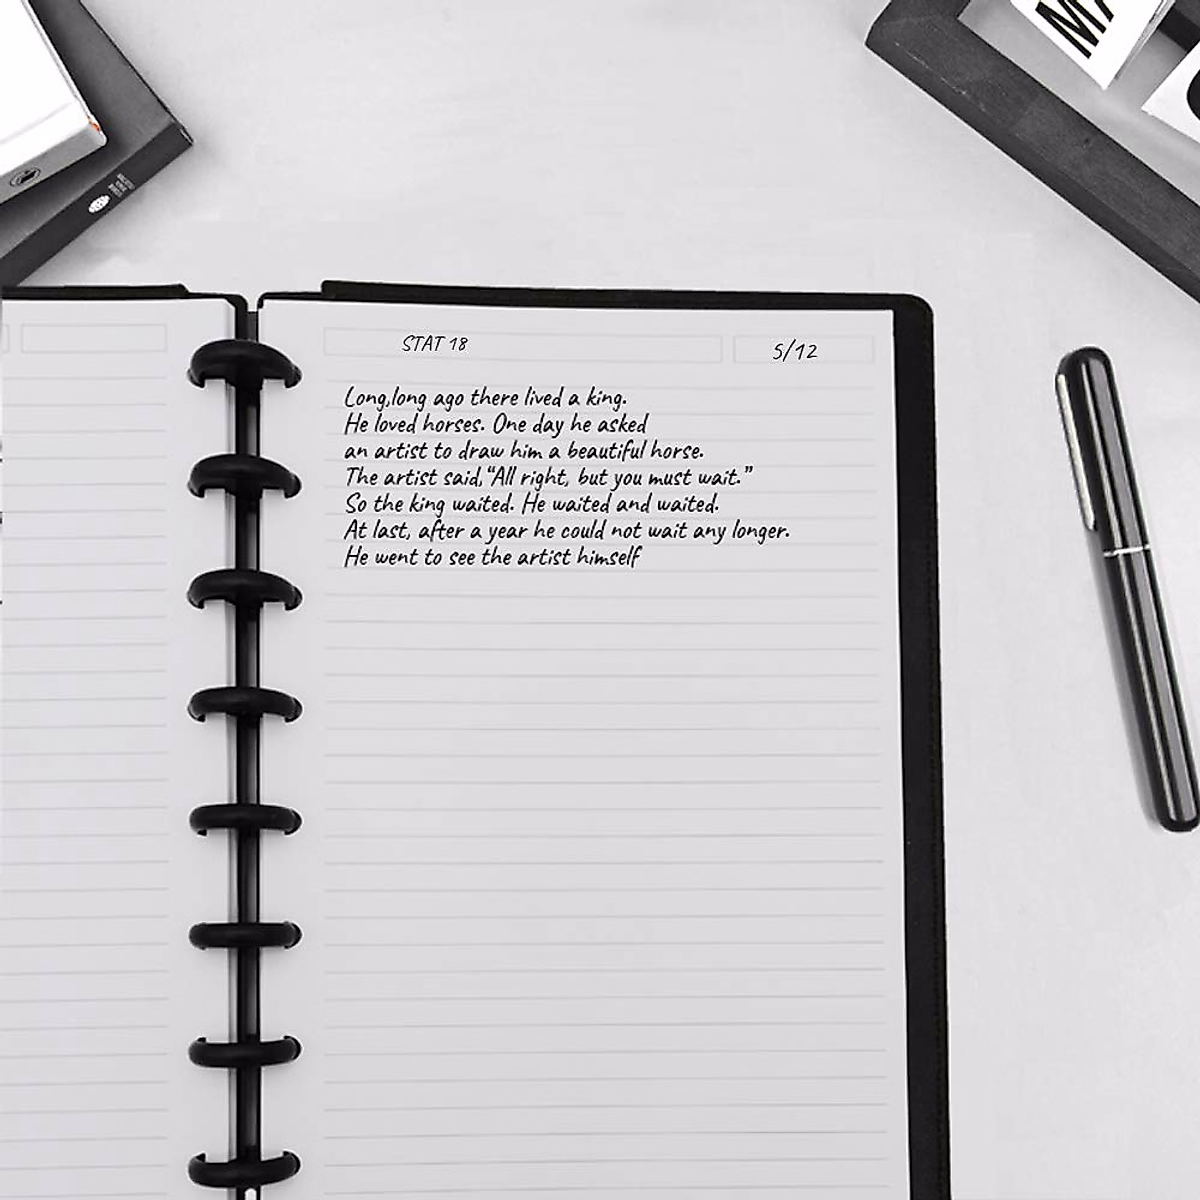 MA
STAT 18
5/12
Long,long ago there lived a king.
He loved horses. One day he asked
an artist to draw him a beautiful horse.
The artist said,“All right, but you must wait.”
So the king waited. He waited and waited.
At last, after a year he could not wait any longer.
He went to see the artist himself